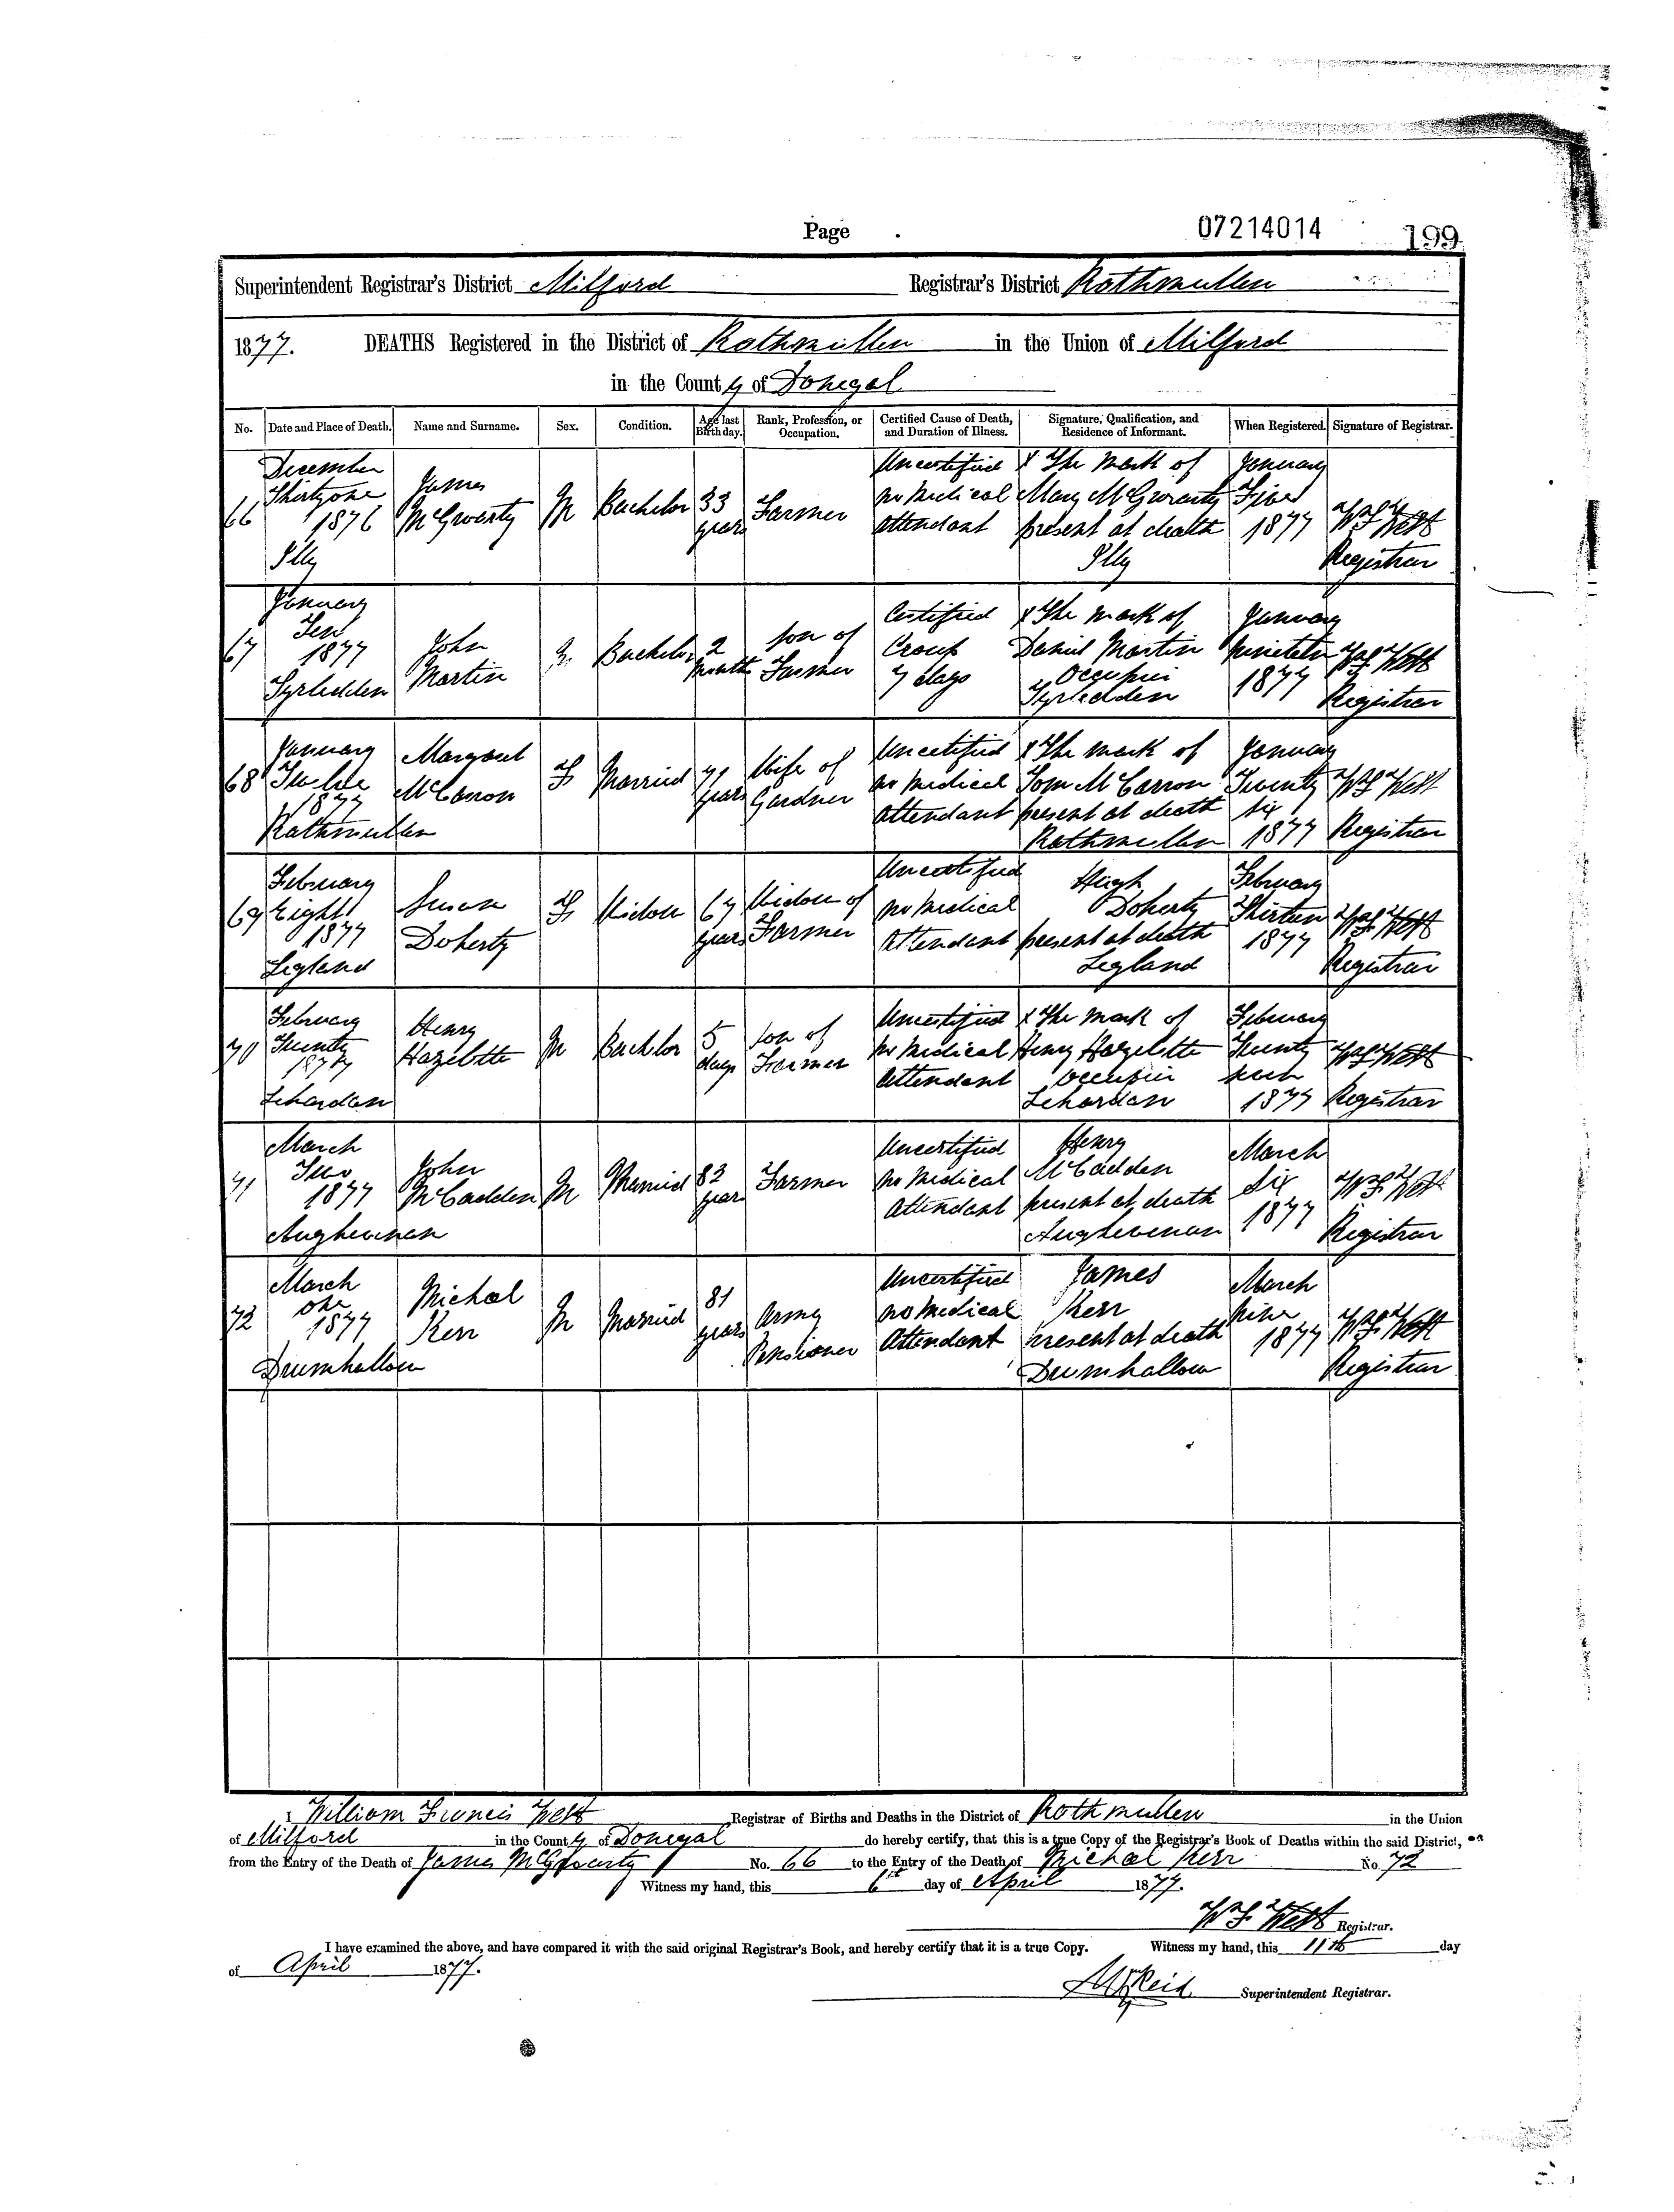 Page 07214014 199
Superintendent Registrar's District Milford Registrar's District Rathmullen
1877. DEATHS Registered in the District of Rathmullen in the Union of Milford
in the County of Donegal
No. Date and Place of Death. Name and Surname. Sex. Condition. Age last Birthday. Rank, Profession, or Occupation. Certified Cause of Death, and Duration of Illness. Signature, Qualification, and Residence of Informant. When Registered. Signature of Registrar.
December Uncertified X The Mark of January
Thirtyone James
66 1876 M Bachelor 33 Farmer no Medical Mary Five
years attendant present at death 1877 W F West
Illy Illy Registrar
January Certified X The mark of January
Ten John son of
67 1877 Martin M Bachelor 2 Farmer Croup Daniel Martin nineteen W F West
months 7 days Occupier 1877
Tyrladden Tyrladden Registrar
January Margaret Uncertified X The mark of January
68 Twelve McCarron F Married 71 Wife of no Medical McCarron Twenty W F West
1877 years Gardner attendant present at death six
Rathmullen Rathmullen 1877 Registrar
February Uncertified Hugh February
69 Eight Susan F Widow 67 Widow of no Medical Doherty Thirteen W F West
1877 Doherty years Farmer Attendant present at death 1877
Legland Legland Registrar
February Henry Uncertified X The mark of February
70 Twenty Hazelette M Bachelor 5 son of no Medical Henry Hazelette Twenty W F West
1877 days Farmer attendant occupier
Lehardan Lehardan 1877 Registrar
March Uncertified Henry March
Two John
71 1877 McCadden M Married 83 Farmer no Medical McCadden Six W F West
years attendant present at death 1877
Aughavenan Aughavenan Registrar
March Uncertified James March
72 one Michal M Married 81 Army no Medical Kerr nine W F West
1877 Kerr years Pensioner Attendant present at death 1877
Drumhallow Drumhallow Registrar
I William Francis West Registrar of Births and Deaths in the District of Rathmullen in the Union
of Milford in the County of Donegal do hereby certify, that this is a true Copy of the Registrar's Book of Deaths within the said District,
from the Entry of the Death of James No. 66 to the Entry of the Death of Michal Kerr No. 72
Witness my hand, this 6th day of April 1877.
W F West Registrar.
I have examined the above, and have compared it with the said original Registrar's Book, and hereby certify that it is a true Copy. Witness my hand, this 11th day
of April 1877.
Reid Superintendent Registrar.